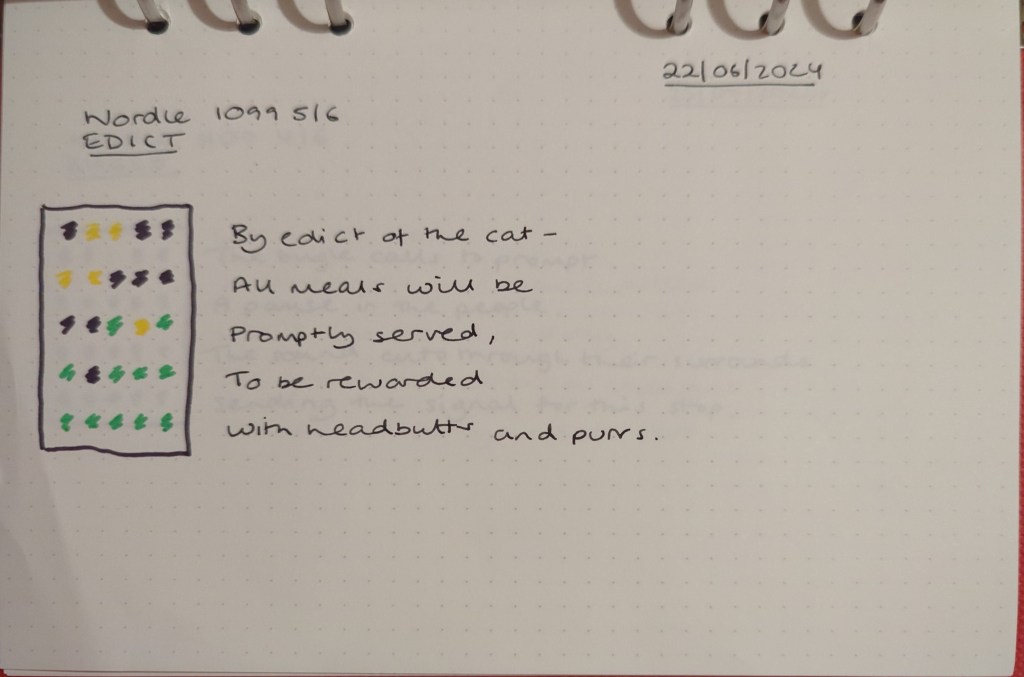 22/06/2024
Wordle 1099 5/6
EDICT
By edict of the cat -
All meals will be
Promptly served,
To be rewarded
with headbutts and purrs.